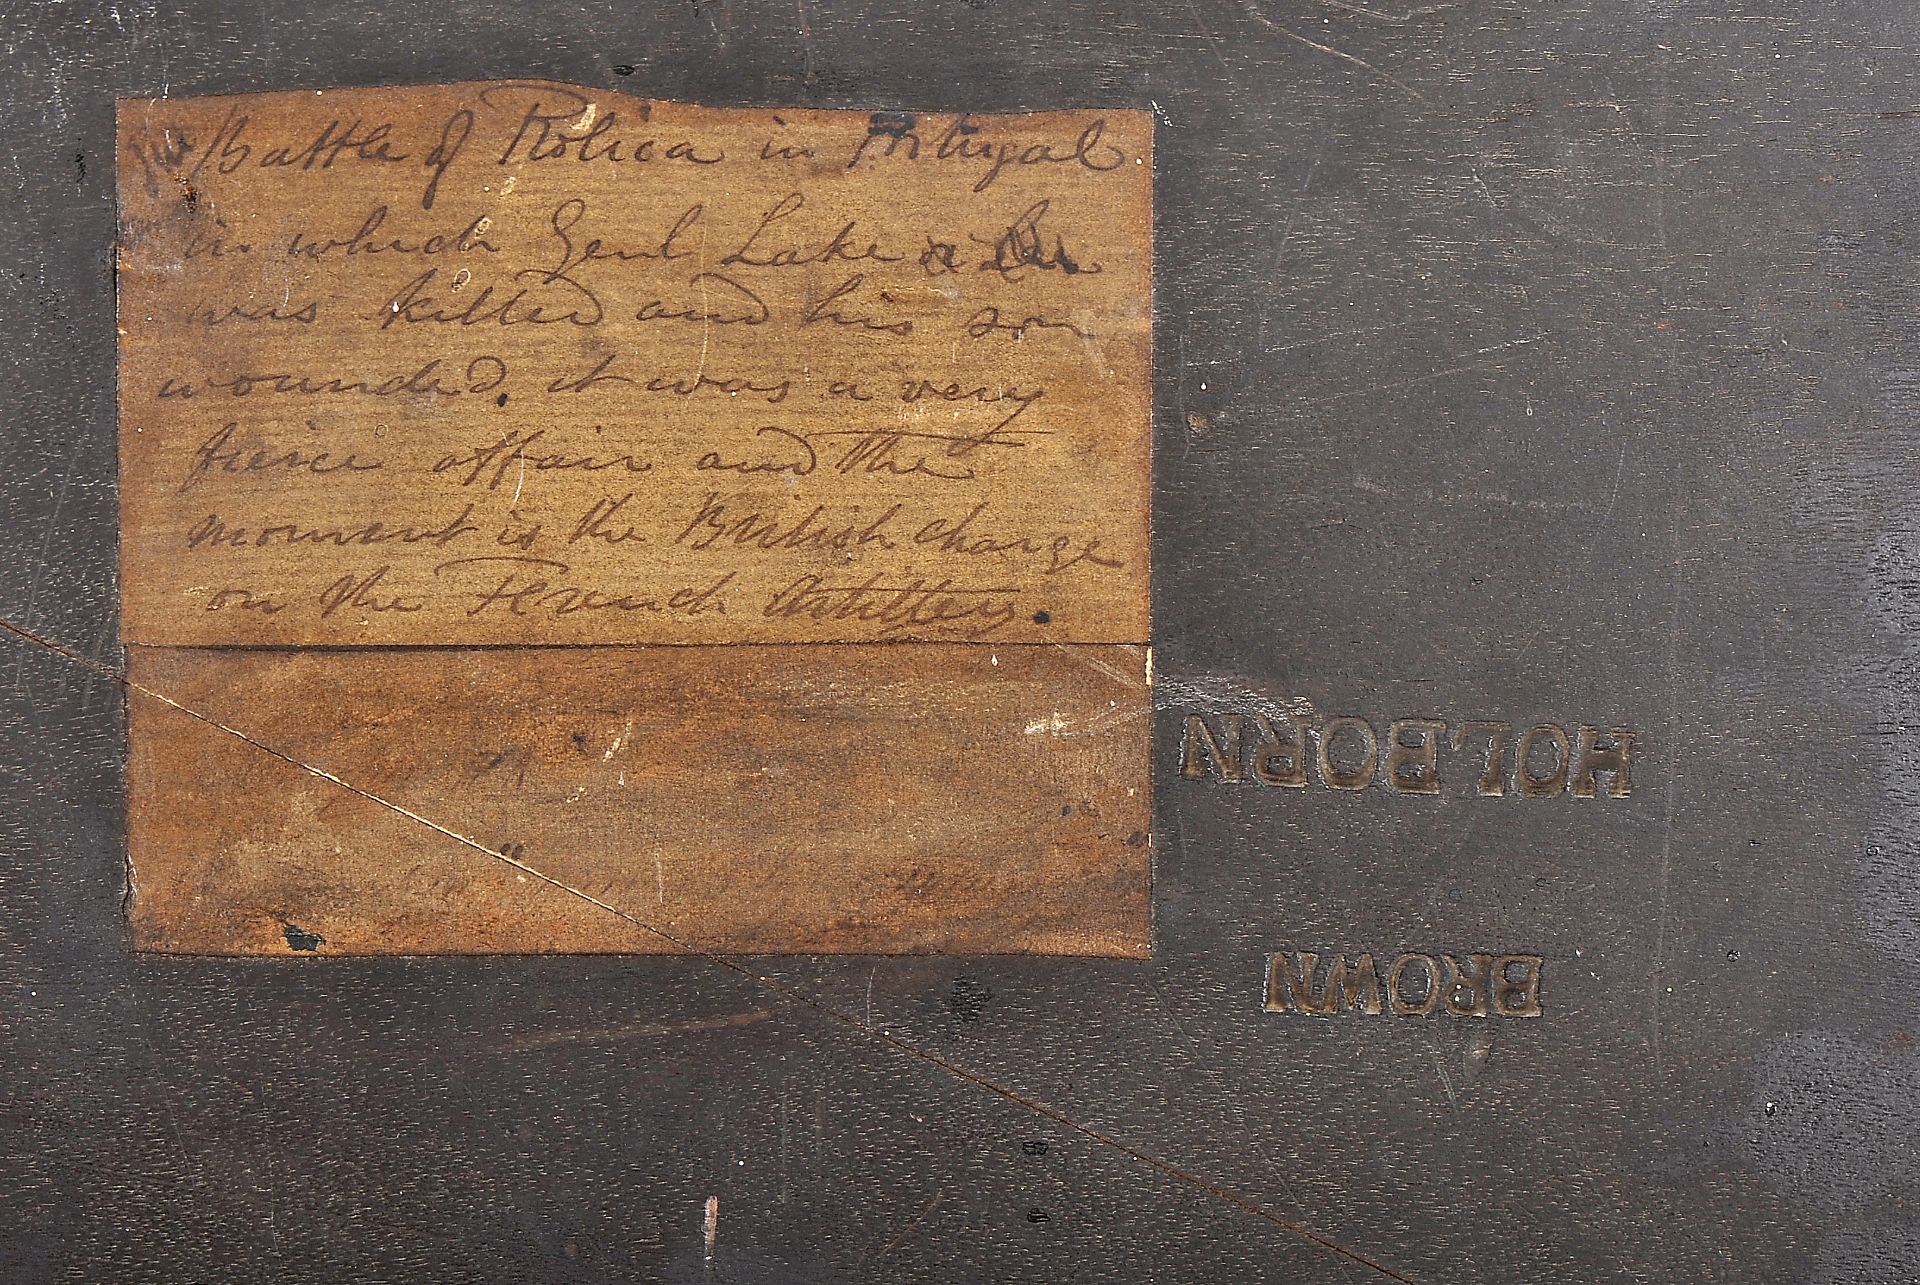 battle of Rolica in Portugal
in which Genl Lake
was killed and his son
wounded. it was a very
fierce affair and the
moment is the British charge
on the French Artillery.
HOLBORN
BROWN